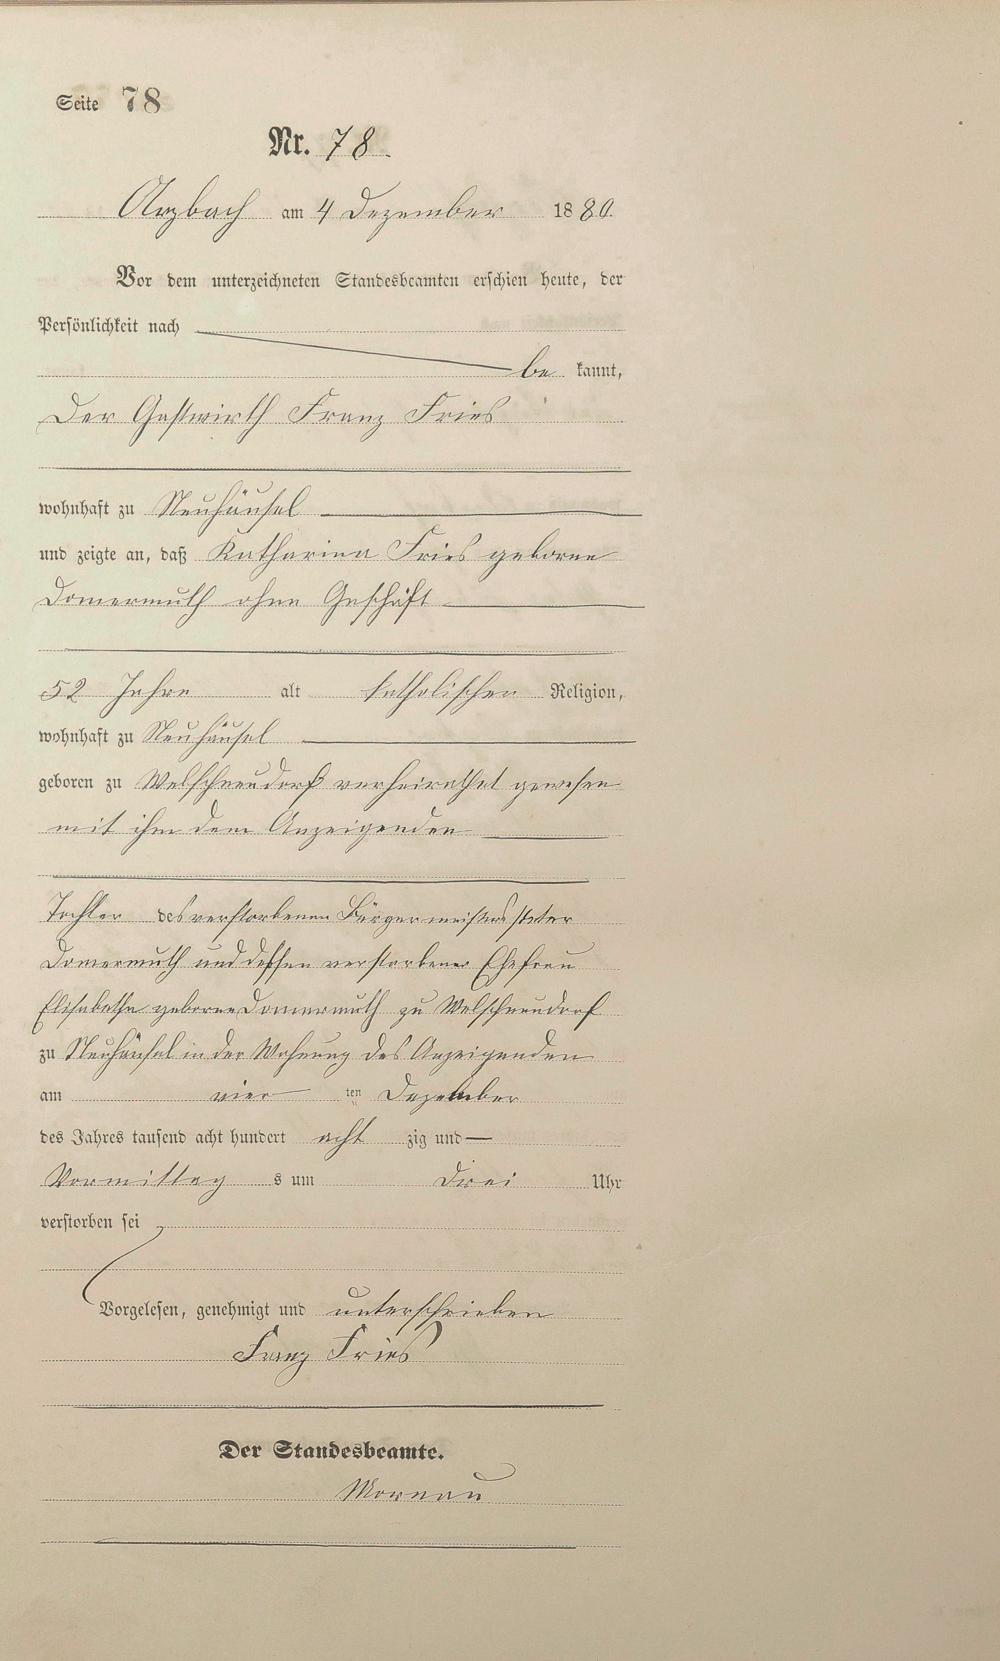 Seite 78
Nr. 78.
Arzbach am 4 Dezember 1880.
Vor dem unterzeichneten Standesbeamten erschien heute, der
Persönlichkeit nach
be kannt,
Der Gastwirth Franz Fries
wohnhaft zu Neuhäusel
und zeigte an, daß Katharina Fries geborne
Domermuth ohne Geschäft
52 Jahre alt katholischen Religion,
wohnhaft zu Neuhäusel
geboren zu Welschneudorf verheirathet gewesen
mit ihm dem Anzeigenden
Tochter des verstorbenen Bürgermeisters
Domermuth und dessen verstorbener Ehefrau
Elisabetha geborne Domermuth zu Welschneudorf
zu Neuhäusel in der Wohnung des Anzeigenden
am vier ten Dezember
des Jahres tausend acht hundert acht zig und
Vormittag s um drei Uhr
verstorben sei
Vorgelesen, genehmigt und unterschrieben
Franz Fries
Der Standesbeamte.